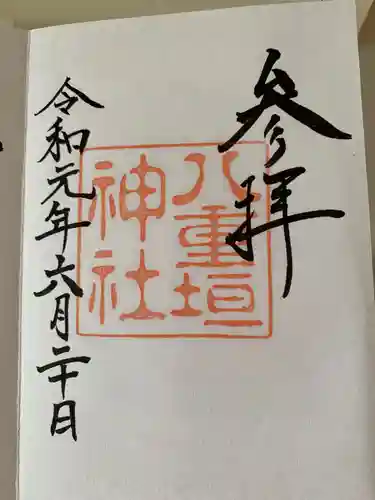 参拝
八重垣
神社
令和元年六月二十日